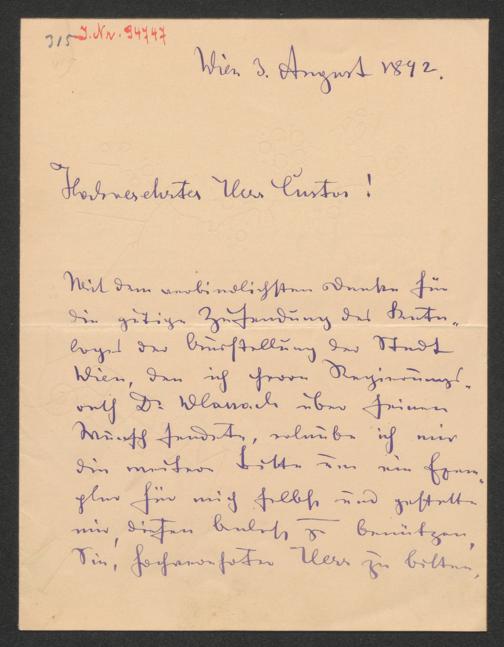 315 J. Nr. 94747
Wien 3. August 1892.
Hochverehrter Herr Custos!
Mit dem verbindlichsten Danke für
die gütige Zusendung des Kata-
loges der Ausstellung der Stadt
Wien, den ich Herrn Regierungs-
rath Dr Wlassack über seinen
Wunsch sendete, erlaube ich mir
die weitere Bitte um ein Exem-
plar für mich selbst und gestatte
mir, diesen Anlaß zu benützen,
Sie, hochverehrter Herr zu bitten,